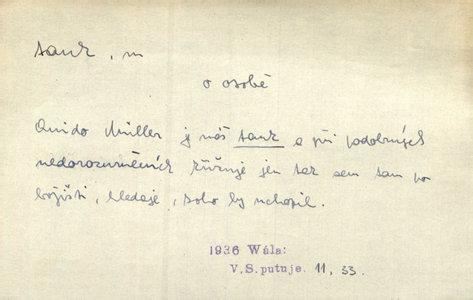 tank, m
o osobě
Quido Müller je náš tank a při podobných
nedorozuměních zuřivuje jen tak sem tam po
bojišti, hledaje, koho by uchopil.
1936 Wála:
V.S.putuje. 11, 33.